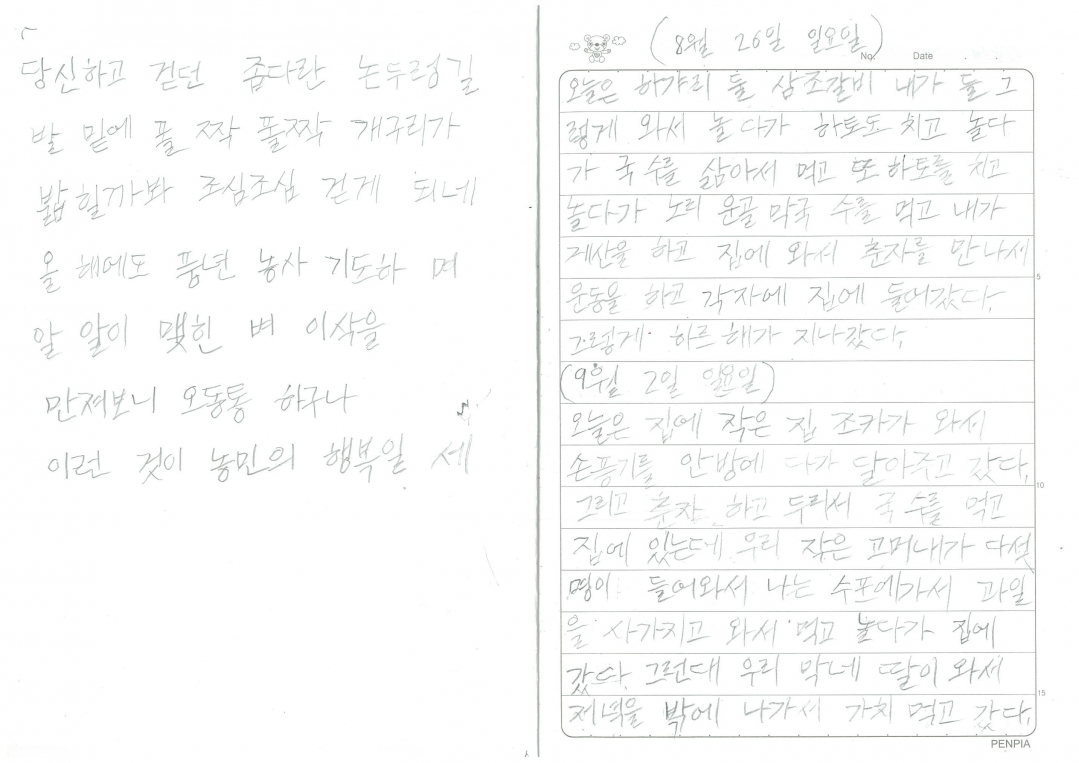 당신하고 걷던 좁다란 논두렁길
발 밑에 풀짝 풀짝 개구리가
밟힐까봐 조심조심 걷게 되네
올 해에도 풍년 농사 기도하 며
알 알이 맺힌 벼 이삭을
만져보니 오동통 하구나
이런 것이 농민의 행복일 세
(8월 26일 일요일)
No. Date
오늘은 하갸리 둘 삼조갈비 내가 둘 그
렇게 와서 놀다가 하토도 치고 놀다
가 국수를 삶아서 먹고 또 하토를 치고
놀다가 노리 운골 막국 수를 먹고 내가
게산을 하고 집에 와서 춘자를 만나세
운동을 하고 각자에 집에 들어갔다,
그렇게 하르 해가 지나갔다,
5
(9월 2일 일요일)
오늘은 집에 작은 집 조카가 와서
손풍기를 안방에 다가 달아주고 갔다,
10
그리고 춘자 하고 두리서 국 수를 먹고
집에 있는데 우리 작은 고머내가 다섯
명이 들어와서 나는 수포에가서 과일
을 사가지고 와서 먹고 놀다가 집에
갔다, 그런대 우리 막네 딸이 와서
15
저녁을 밖에 나가서 가치 먹고 갔다,
PENPIA